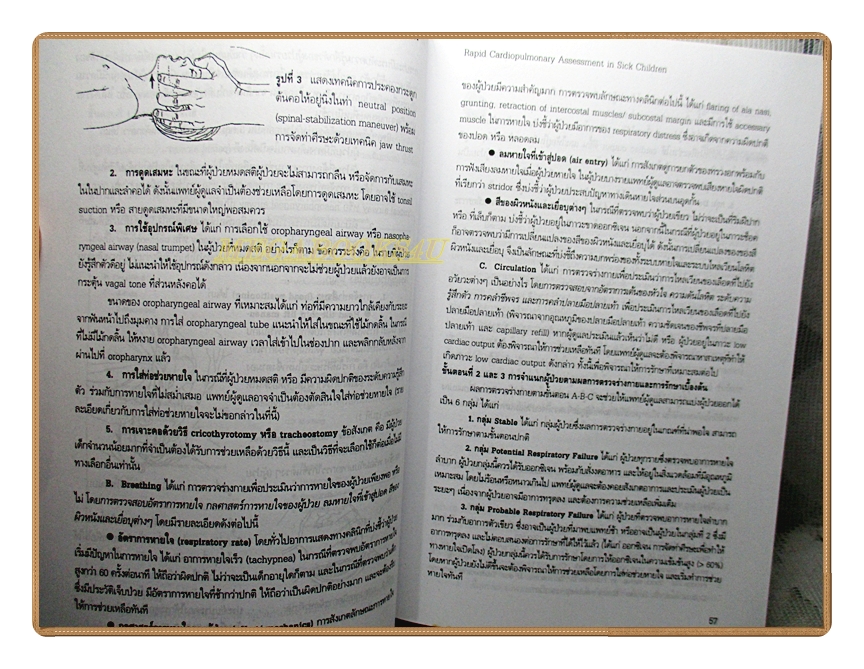 รูปที่ 3 แสดงเทคนิคการประคองกระดูก
ต้นคอให้อยู่นิ่งในท่า neutral position
(spinal-stabilization maneuver) พร้อม
การจัดท่าศีรษะด้วยเทคนิค jaw thrust
2. การดูดเสมหะ ในขณะที่ผู้ป่วยหมดสติผู้ป่วยจะไม่สามารถกลืน หรือจัดการกับเสมหะ
ในปากและลำคอได้ ดังนั้นแพทย์ผู้ดูแลจำเป็นต้องช่วยเหลือโดยการดูดเสมหะ โดยอาจใช้ tonsil
suction หรือ สายดูดเสมหะที่มีขนาดใหญ่พอสมควร
3. การใช้อุปกรณ์พิเศษ ได้แก่ การเลือกใช้ oropharyngeal airway หรือ nasopha-
ryngeal airway (nasal trumpet) ในผู้ป่วยที่หมดสติ อย่างไรก็ตาม ข้อควรระวังคือ ในรายที่ผู้ป่วย
ยังรู้สึกตัวดีอยู่ ไม่แนะนำให้ใช้อุปกรณ์ดังกล่าว เนื่องจากนอกจากจะไม่ช่วยผู้ป่วยแล้วยังอาจเป็นการ
กระตุ้น vagal tone ที่ส่วนหลังคอได้
ขนาดของ oropharyngeal airway ที่เหมาะสมได้แก่ ท่อที่มีความยาวใกล้เคียงกับระยะ
จากฟันหน้าไปถึงมุมคาง การใส่ oropharyngeal tube แนะนำให้ใส่ในขณะที่ใช้ไม้กดลิ้น ในกรณี
ที่ไม่มีไม้กดลิ้น ให้หงาย oropharyngeal airway เวลาใส่เข้าไปในช่องปาก และพลิกกลับหลังจาก
ผ่านไปที่ oropharynx แล้ว
4. การใส่ท่อช่วยหายใจ ในกรณีที่ผู้ป่วยหมดสติ หรือ มีความผิดปกติของระดับความรู้สึก
ตัว ร่วมกับการหายใจที่ไม่สม่ำเสมอ แพทย์ผู้ดูแลอาจจำเป็นต้องตัดสินใจใส่ท่อช่วยหายใจ (ราย
ละเอียดเกี่ยวกับการใส่ท่อช่วยหายใจจะไม่ขอกล่าวในที่นี้)
5. การเจาะคอด้วยวิธี cricothyrotomy หรือ tracheostomy ข้อสังเกต คือ มีผู้ป่วย
เด็กจำนวนน้อยมากที่จำเป็นต้องได้รับการช่วยเหลือด้วยวิธีนี้ และเป็นวิธีที่จะเลือกใช้ก็ต่อเมื่อไม่มี
ทางเลือกอื่นเท่านั้น
B. Breathing ได้แก่ การตรวจร่างกายเพื่อประเมินว่าการหายใจของผู้ป่วยเพียงพอ หรือ
ไม่ โดยการตรวจสอบอัตราการหายใจ กลศาสตร์การหายใจของผู้ป่วย ลมหายใจที่เข้าสู่ปอด สีของ
ผิวหนังและเยื่อบุต่างๆ โดยมีรายละเอียดดังต่อไปนี้
● อัตราการหายใจ (respiratory rate) โดยทั่วไปอาการแสดงทางคลินิกที่บ่งชี้ว่าผู้ป่วย
เริ่มมีปัญหาในการหายใจ ได้แก่ อาการหายใจเร็ว (tachypnea) ในกรณีที่ตรวจพบอัตราการหายใจ
สูงกว่า 60 ครั้งต่อนาที ให้ถือว่าผิดปกติ ไม่ว่าจะเป็นเด็กอายุใดก็ตาม และในกรณีที่ตรวจพบว่าเด็ก
ซึ่งมีประวัติเจ็บป่วย มีอัตราการหายใจที่ช้ากว่าปกติ ให้ถือว่าเป็นผิดปกติอย่างมาก และจะต้องรีบ
ให้การช่วยเหลือทันที
การสังเกตลักษณะการหายใจ
Rapid Cardiopulmonary Assessment in Sick Children
ของผู้ป่วยมีความสำคัญมาก การตรวจพบลักษณะทางคลินิกต่อไปนี้ ได้แก่ flaring of ala nasi,
grunting, retraction of intercostal muscles/ subcostal margin และมีการใช้ accessory
muscle ในการหายใจ บ่งชี้ว่าผู้ป่วยมีอาการของ respiratory distress ซึ่งอาจเกิดจากความผิดปกติ
ของปอด หรือ หลอดลม
● ลมหายใจที่เข้าสู่ปอด (air entry) ได้แก่ การสังเกตดูการยกตัวของทรวงอกพร้อมกับ
การฟังเสียงลมหายใจเมื่อผู้ป่วยหายใจ ในผู้ป่วยบางรายแพทย์ผู้ดูแลอาจตรวจพบเสียงหายใจผิดปกติ
ที่เรียกว่า stridor ซึ่งบ่งชี้ว่าผู้ป่วยประสบปัญหาทางเดินหายใจส่วนบนอุดกั้น
● สีของผิวหนังและเยื่อบุต่างๆ ในกรณีที่ตรวจพบว่าผู้ป่วยเขียว ไม่ว่าจะเป็นที่ริมฝีปาก
หรือ ที่เล็บก็ตาม บ่งชี้ว่าผู้ป่วยอยู่ในภาวะขาดออกซิเจน นอกจากนี้ในกรณีที่ผู้ป่วยอยู่ในภาวะช็อค
ก็อาจตรวจพบว่ามีการเปลี่ยนแปลงของสีของผิวหนังและเยื่อบุได้ ดังนั้นการเปลี่ยนแปลงของของสี
ผิวหนังและเยื่อบุ จึงเป็นลักษณะที่บ่งชี้ถึงความบกพร่องของทั้งระบบหายใจและระบบไหลเวียนโลหิต
C. Circulation ได้แก่ การตรวจร่างกายเพื่อประเมินว่าการไหลเวียนของเลือดที่ไปยัง
อวัยวะต่างๆ เป็นอย่างไร โดยการตรวจสอบจากอัตราการเต้นของหัวใจ ความดันโลหิต ระดับความ
รู้สึกตัว การคลำชีพจร และการคลำปลายมือปลายเท้า เพื่อประเมินการไหลเวียนของเลือดที่ไปยัง
ปลายมือปลายเท้า (พิจารณาจากอุณหภูมิของปลายมือปลายเท้า ความชัดเจนของชีพจรที่ปลายมือ
ปลายเท้า และ capillary refill) หากผู้ดูแลประเมินแล้วเห็นว่าไม่ดี หรือ ผู้ป่วยอยู่ในภาวะ low
cardiac output ต้องพิจารณาให้การช่วยเหลือทันที โดยแพทย์ผู้ดูแลจะต้องพิจารณาหาสาเหตุที่ทำให้
เกิดภาวะ low cardiac output ดังกล่าว ทั้งนี้เพื่อพิจารณาให้การรักษาที่เหมาะสมต่อไป
ขั้นตอนที่ 2 และ 3 การจำแนกผู้ป่วยตามผลการตรวจร่างกายและการรักษาเบื้องต้น
ผลการตรวจร่างกายตามขั้นตอน A-B-C จะช่วยให้แพทย์ผู้ดูแลสามารถแบ่งผู้ป่วยออกได้
เป็น 6 กลุ่ม ได้แก่
1. กลุ่ม Stable ได้แก่ กลุ่มผู้ป่วยซึ่งผลการตรวจร่างกายอยู่ในเกณฑ์ที่น่าพอใจ สามารถ
ให้การรักษาตามขั้นตอนปกติ
2. กลุ่ม Potential Respiratory Failure ได้แก่ ผู้ป่วยทุกรายซึ่งตรวจพบอาการหายใจ
ลำบาก ผู้ป่วยกลุ่มนี้ควรได้รับออกซิเจน พร้อมกับสังเกตอาการ และให้อยู่ในสิ่งแวดล้อมที่มีอุณหภูมิ
เหมาะสม โดยไม่ร้อนหรือหนาวเกินไป แพทย์ผู้ดูแลจะต้องคอยสังเกตอาการและประเมินผู้ป่วยเป็น
ระยะๆ เนื่องจากผู้ป่วยอาจมีอาการทรุดลง และต้องการความช่วยเหลือเพิ่มเติม
3. กลุ่ม Probable Respiratory Failure ได้แก่ ผู้ป่วยที่ตรวจพบอาการหายใจลำบาก
มาก ร่วมกับอาการตัวเขียว ซึ่งอาจเป็นผู้ป่วยที่มาพบแพทย์ช้า หรืออาจเป็นผู้ป่วยในกลุ่มที่ 2 ซึ่งมี
อาการทรุดลง และไม่ตอบสนองต่อการรักษาที่ได้ให้ไว้แล้ว (ได้แก่ ออกซิเจน การจัดท่าศีรษะเพื่อทำให้
ทางหายใจเปิดโล่ง) ผู้ป่วยกลุ่มนี้ควรได้รับการรักษาโดยการให้ออกซิเจนในความเข้มข้นสูง (> 60%)
โดยหากผู้ป่วยยังไม่ดีขึ้นจะต้องพิจารณาให้การช่วยเหลือโดยการใส่ท่อช่วยหายใจ และเริ่มทำการช่วย
หายใจทันที
57